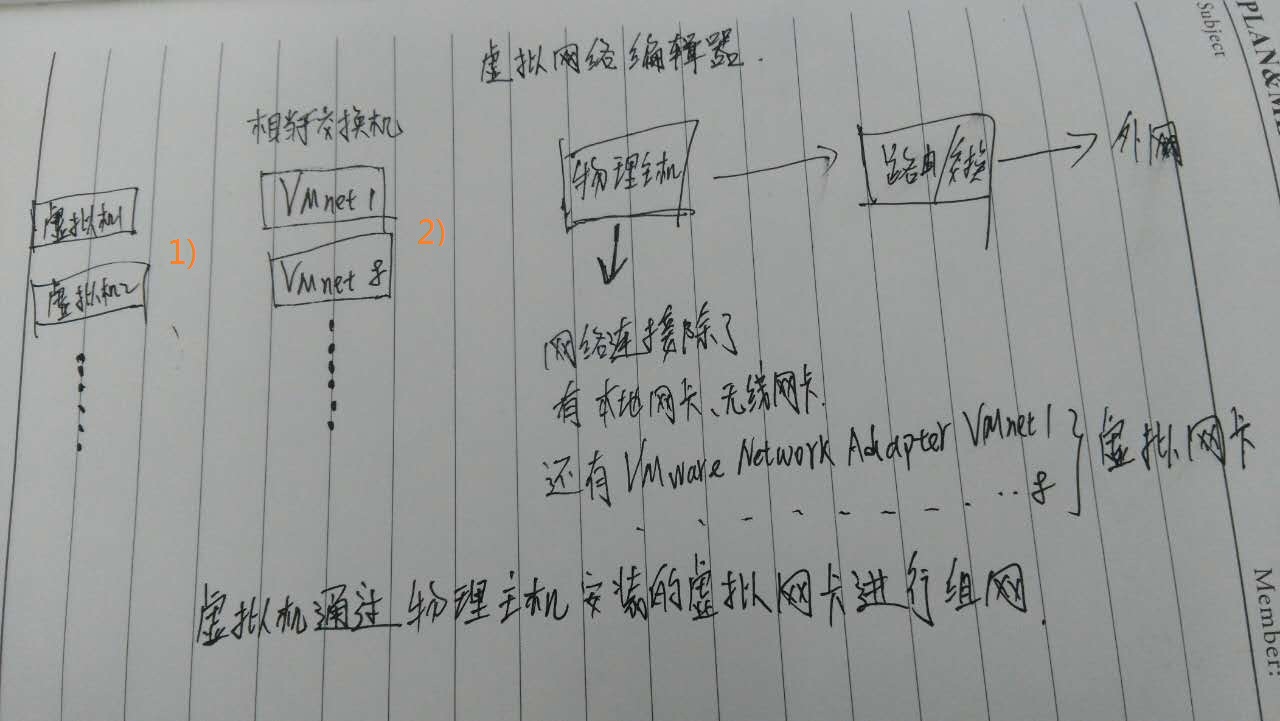 PLAN&M
Subject
虚拟网络编辑器.
相当于交换机
虚拟机1
虚拟机2
1)
VMnet 1
VMnet 8
2)
物理主机
路由/交换
外网
网络连接除了
有本地网卡、无线网卡.
还有 VMware Network Adapter VMnet 1
8
虚拟网卡
虚拟机通过物理主机安装的虚拟网卡进行组网.
Member: